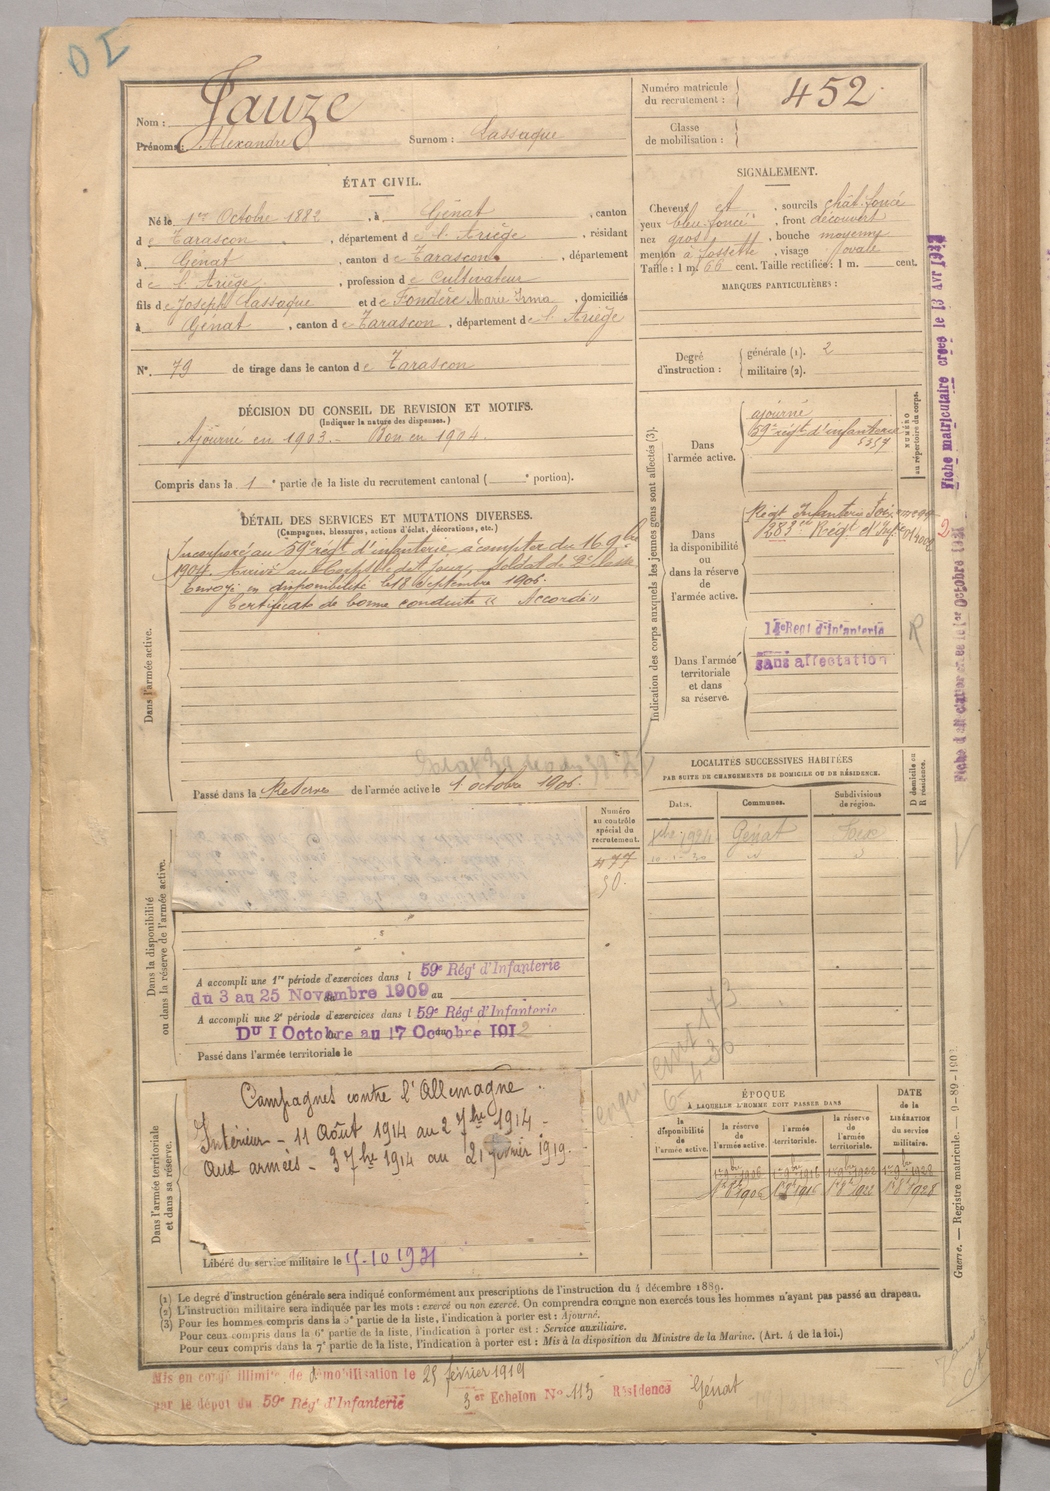 OI
Nom : Fauze
Prénoms : Alexandre Surnom : Lassaque
Numéro matricule du recrutement : 452
Classe de mobilisation :
ÉTAT CIVIL.
Né le 1er Octobre 1882, à Génat, canton
de Tarascon, département de l'Ariège, résidant
à Génat, canton de Tarascon, département
de l'Ariège, profession de Cultivateur
fils de Joseph Lassaque et de Fondère Marie Irma, domiciliés
à Génat, canton de Tarascon, département de l'Ariège
N° 79 de tirage dans le canton de Tarascon
SIGNALEMENT.
Cheveux et, sourcils chât. foncé
yeux bleu foncé, front découvert
nez gros, bouche moyenne
menton à fossette, visage ovale
Taille : 1 m. 66 cent. Taille rectifiée : 1 m. cent.
MARQUES PARTICULIÈRES :
Degré d'instruction : générale (1). 2
militaire (2).
DÉCISION DU CONSEIL DE REVISION ET MOTIFS.
(Indiquer la nature des dispenses.)
Ajourné en 1903. - Bon en 1904.
Compris dans la 1e partie de la liste du recrutement cantonal ( e portion).
DÉTAIL DES SERVICES ET MUTATIONS DIVERSES.
(Campagnes, blessures, actions d'éclat, décorations, etc.)
Incorporé au 59e régt d'infanterie à compter du 16 9bre
1904. Arrivé au Corps le dit jour, soldat de 2e classe
Envoyé en disponibilité le 18 Septembre 1906.
Certificat de bonne conduite "Accordé"
Dans l'armée active.
Passé dans la Réserve de l'armée active le 1 octobre 1906.
Indication des corps auxquels les jeunes gens sont affectés (3).
NUMÉRO au répertoire du corps.
Dans l'armée active.
ajourné
59e régt d'infanterie
5357
Dans la disponibilité ou dans la réserve de l'armée active.
Régt Infanterie Foix
283e Régt d'Infie
Dans l'armée territoriale et dans sa réserve.
14e Regt d'Infanterie
sans affectation
R
LOCALITÉS SUCCESSIVES HABITÉES
PAR SUITE DE CHANGEMENTS DE DOMICILE OU DE RÉSIDENCE.
Dates. Communes. Subdivisions de région. D domicile ou R résidence.
1924 Génat Foix
Numéro au contrôle spécial du recrutement.
477
50.
Dans la disponibilité ou dans la réserve de l'armée active.
A accompli une 1re période d'exercices dans l 59e Rég't d'Infanterie
du 3 au 25 Novembre 1909 au
A accompli une 2e période d'exercices dans l 59e Rég't d'Infanterie
Du 1 Octobre au 17 Octobre 1912
Passé dans l'armée territoriale le
Dans l'armée territoriale et dans sa réserve.
Campagnes contre l'Allemagne.
Intérieur - 11 Août 1914 au 2 7bre 1914 -
Aux armées - 3 7bre 1914 au 21 février 1919.
Libéré du service militaire le 15-10 1931
ÉPOQUE
À LAQUELLE L'HOMME DOIT PASSER DANS
la disponibilité de l'armée active. la réserve de l'armée active. l'armée territoriale. la réserve de l'armée territoriale.
DATE de la LIBÉRATION du service militaire.
1er 9bre 1906 1er 9bre 1916 1er 9bre 1922 1er 9bre 1928
1er 8bre 1906 1er 8bre 1916 1er 8bre 1922 1er 8bre 1928
(1) Le degré d'instruction générale sera indiqué conformément aux prescriptions de l'instruction du 4 décembre 1889.
(2) L'instruction militaire sera indiquée par les mots : exercé ou non exercé. On comprendra comme non exercés tous les hommes n'ayant pas passé au drapeau.
(3) Pour les hommes compris dans la 5e partie de la liste, l'indication à porter est : Ajourné.
Pour ceux compris dans la 6e partie de la liste, l'indication à porter est : Service auxiliaire.
Pour ceux compris dans la 7e partie de la liste, l'indication à porter est : Mis à la disposition du Ministre de la Marine. (Art. 4 de la loi.)
Mis en congé illimité de démobilisation le 25 février 1919
par le dépôt du 59e Rég't d'Infanterie 3er Echelon No 113 Résidence Génat
Fiche matriculaire créée le 13 Avr
Octobre 1931
Guerre. — Registre matricule. — 9-89-1903